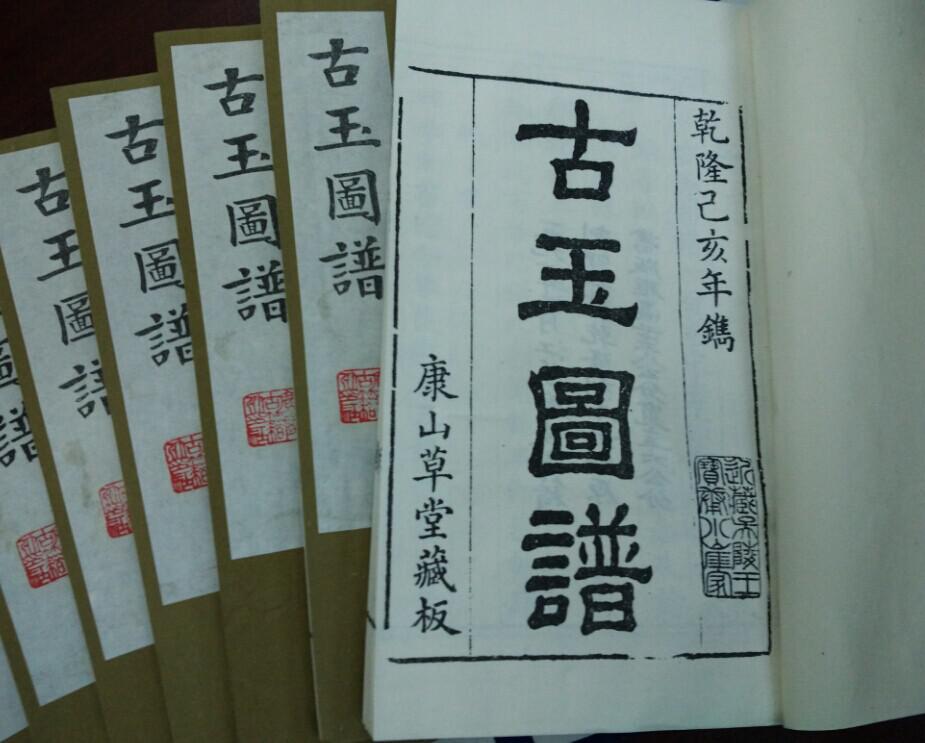 乾隆己亥年鐫
古玉圖譜
康山草堂藏板
古玉圖譜
古玉圖譜
古玉圖譜
古玉圖譜
圖譜